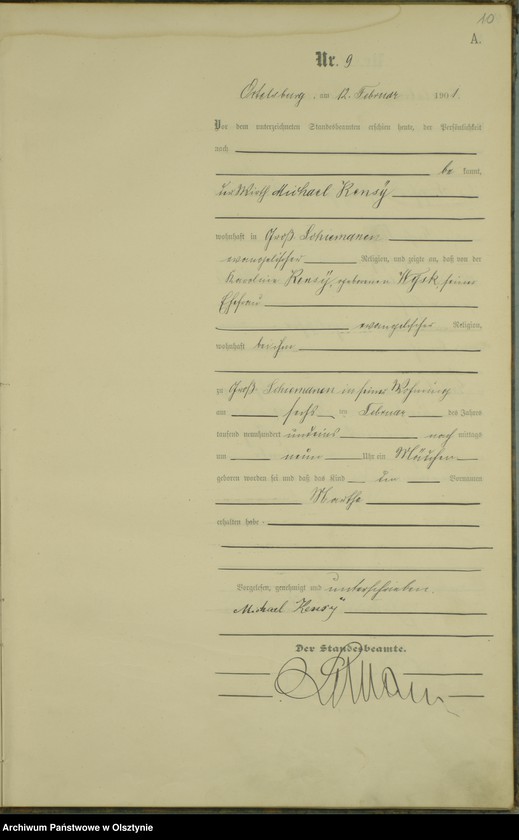 10
A.
Nr. 9
Ortelsburg, am 12. Februar 1901.
Vor dem unterzeichneten Standesbeamten erschien heute, der Persönlichkeit
nach
be kannt,
der Wirth Michael Kensÿ
wohnhaft in Groß Schiemanen
evangelischer Religion, und zeigte an, daß von der
Karoline Kensÿ, geborenen seiner
Ehefrau
evangelischer Religion,
wohnhaft bei ihm
zu Groß Schiemanen in seiner Wohnung
am sechs ten Februar des Jahres
tausend neunhundert undeins nach mittags
um neun Uhr ein Mädchen
geboren worden sei und daß das Kind den Vornamen
Martha
erhalten habe.
Vorgelesen, genehmigt und unterschrieben.
Michael Kensÿ
Der Standesbeamte.
Archiwum Państwowe w Olsztynie